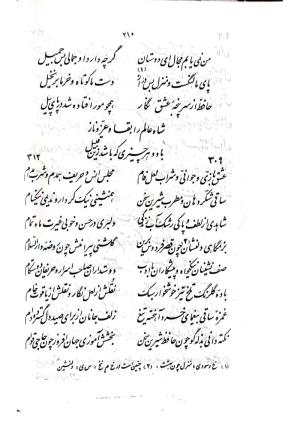 ۲۱۰
من نمی‌یابم مجال ای دوستان گرچه دارد او جمالی بس جمیل
پای ما لنگست و منزل بس دراز (۱) دست ما کوتاه و خرما بر نخیل
حافظ از سرپنجهٔ عشق نگار همچو مور افتاده شد در پای پیل
شاه عالم را بقا و عز و ناز
باد و هر چیزی که باشد زین قبیل
۳۰۹ ۳۱۲
عشق‌بازی و جوانی و شراب لعل فام مجلس انس و حریف همدم و شرب مدام
ساقی شکردهان و مطرب شیرین سخن همنشینی نیک کردار و ندیمی نیکنام
شاهدی از لطف و پاکی رشک آب زندگی دلبری در حسن و خوبی غیرت ماه تمام
بزمگاهی دلنشان چون قصر فردوس برین گلشنی پیرامنش چون روضهٔ دارالسلام
صف نشینان نیکخواه و پیشکاران با ادب دوستداران صاحب اسرار و حریفان دوستکام
بادهٔ گلرنگ تلخ تیز خوشخوار سبک نقلش از لعل نگار و نقلش از یاقوت خام
غمزهٔ ساقی بیغمای خرد آهخته تیغ زلف جانان از برای صید دل گسترده دام
نکته دانی بذله گو چون حافظ شیرین سخن بخشش آموزی جهان افروز چون حاجی قوام
(۱) (۲) چنین است در دلنشین